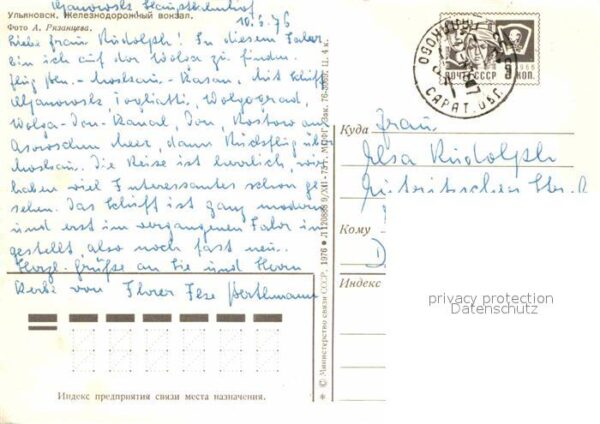 Uljanowsk Hauptbahnhof
Ульяновск. Железнодорожный вокзал.
Фото А. Рязанцева.
10.6.76
Liebe Frau Rudolph! In diesem Jahr
bin ich auf der Wolga zu finden.
Flug Bln.-Moskau-Kasan. Mit Schiff
Uljanowsk, Togliatti, Wolgograd,
Wolga-Don-Kanal, Don, Rostow am
Asowschen Meer, dann Rückflug über
Moskau. Die Reise ist herrlich, wir
haben viel Interessantes schon ge-
sehen. Das Schiff ist ganz modern
und erst im vergangenen Jahr in
gestellt, also noch fast neu.
Herzl. Grüße an Sie und Herrn
von Ihrer Ilse
Индекс предприятия связи места назначения.
© Министерство связи СССР. 1976
Ц. 4 к.
ПОЧТА СССР
1966
КОП.
САРАТ. ОБЛ.
Куда
Frau
Elsa Rudolph
Кому
D
Индекс
privacy protection
Datenschutz